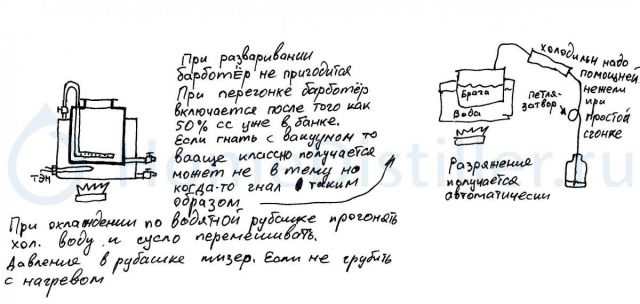 При разваривании
барботёр не пригодится
При перегонке барботёр
включается после того как
50% сс уже в банке.
Если гнать с вакуумом то
ваще классно получается
может не в тему но
когда-то гнал таким
образом
ТЭН
При охлаждении по водяной рубашке прогонять
хол. воду и сусло перемешивать.
Давления в рубашке мизер. Если не грубить
с нагревом
холодильн надо
помощней
нежели
при
простой
сгонке
петля-
затвор
Брага
Вода
Разряжения
получается
автоматически
HomeDistiller.ru